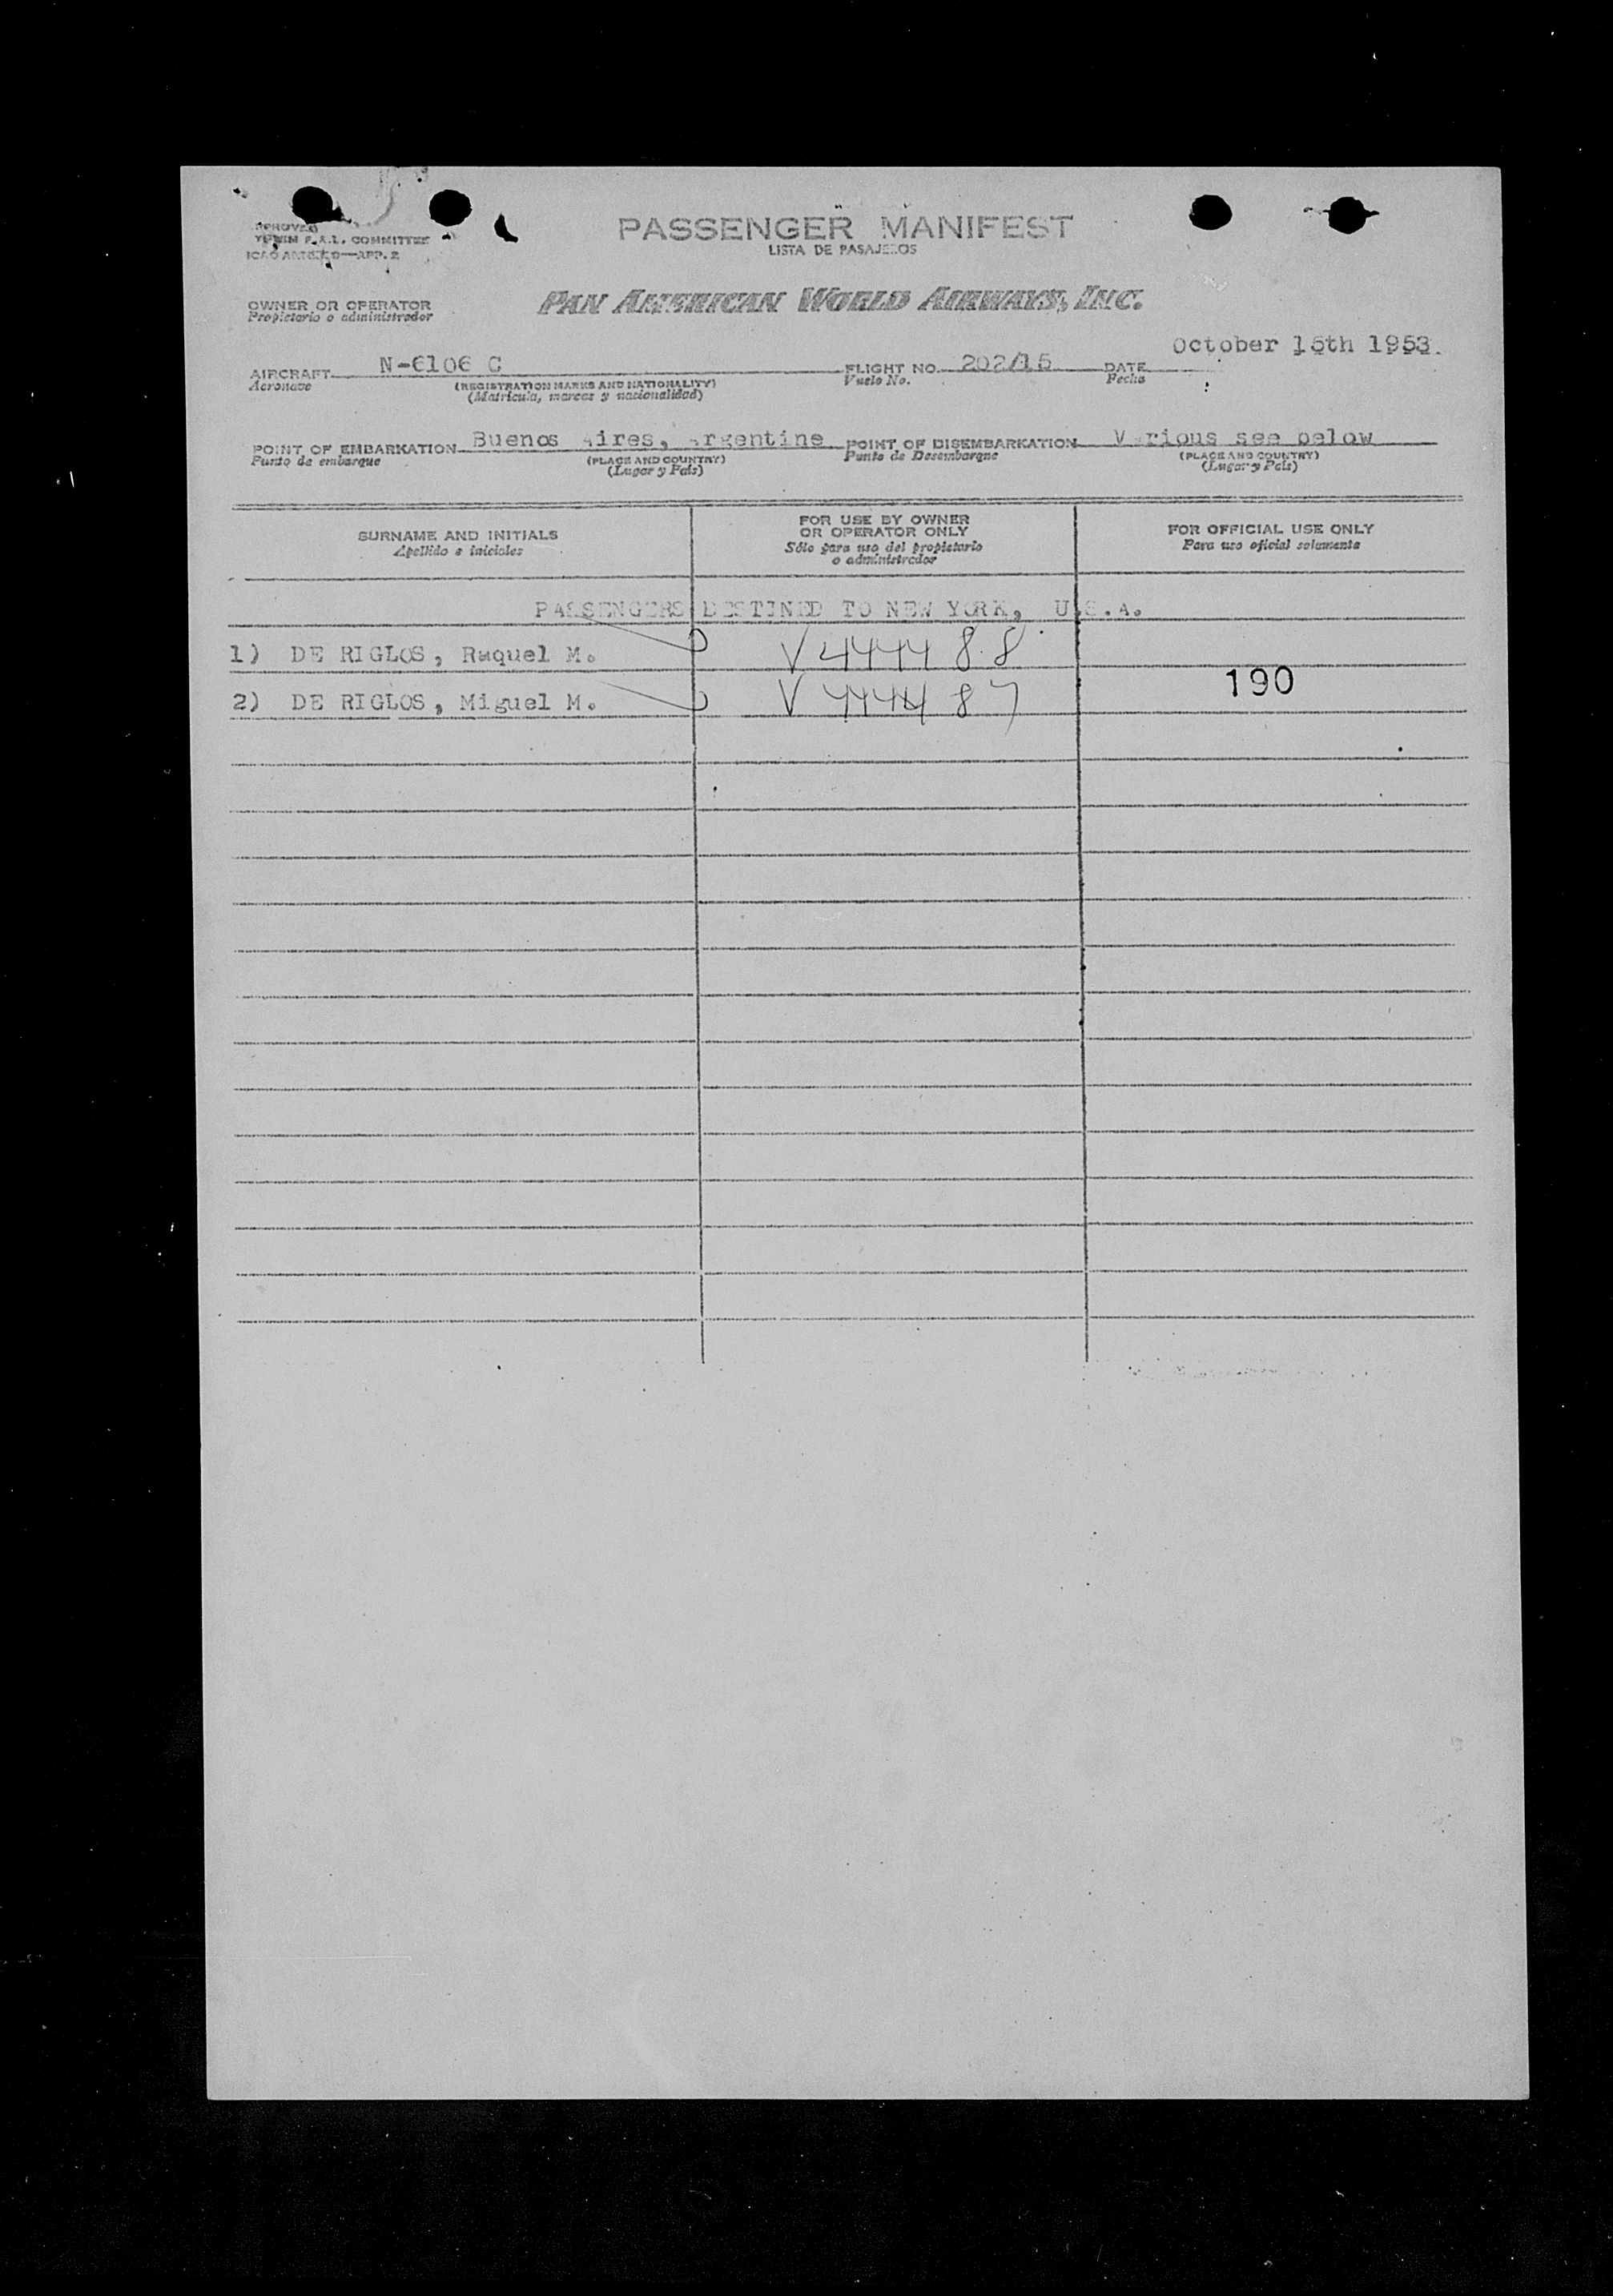 PASSENGER MANIFEST
LISTA DE PASAJEROS
F.A.L. COMMITTEE
APP. 2
OWNER OR OPERATOR
Propietario o administrador
PAN AMERICAN WORLD AIRWAYS, INC.
October 15th 1953.
AIRCRAFT N-6106 C FLIGHT NO. 202/15 DATE
Aeronave (REGISTRATION MARKS AND NATIONALITY) Vuelo No. Fecha
(Matrícula, marcas y nacionalidad)
POINT OF EMBARKATION Buenos Aires, Argentine POINT OF DISEMBARKATION Various see below
Punto de embarque (PLACE AND COUNTRY) Punto de Desembarque (PLACE AND COUNTRY)
(Lugar y País) (Lugar y País)
SURNAME AND INITIALS
Apellido e iniciales
FOR USE BY OWNER
OR OPERATOR ONLY
Sólo para uso del propietario
o administrador
FOR OFFICIAL USE ONLY
Para uso oficial solamente
PASSENGERS DESTINED TO NEW YORK, U.S.A.
1) DE RIGLOS, Raquel M. V 444488
2) DE RIGLOS, Miguel M. V 444487
190